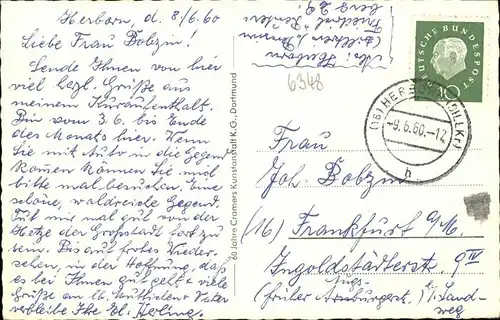 Herborn, d. 8/6.60
Liebe Frau Bobzin!
Sende Ihnen von hier
viel herzl. Grüße aus
meinem Kuraufenthalt.
Bin vom 3.6. bis Ende
des Monats hier. Wenn
Sie mit Auto in die Gegend
kommen können Sie mich
bitte mal besuchen. Eine
schöne, waldreiche Gegend.
Tut mir mal gut von der
Hetze der Großstadt fort zu
sein. Bis auf frohes Wieder-
sehen, in der Hoffnung, daß
es Ihnen gut geht + viele
Grüße an lb. Mutti + Vater
verbleibe Ihre El.
60 Jahre Cramers Kunstanstalt K.G., Dortmund
Abs: Herborn
6348
DEUTSCHE BUNDESPOST
10
(16) HERBORN (DILLKR)
-9.6.60.-12
h
Frau
Joh. Bobzin
(16) Frankfurt a/M.
Ingolstädterstr. 9 IV
Augs-
(früher burgerst.) b/Sand-
weg